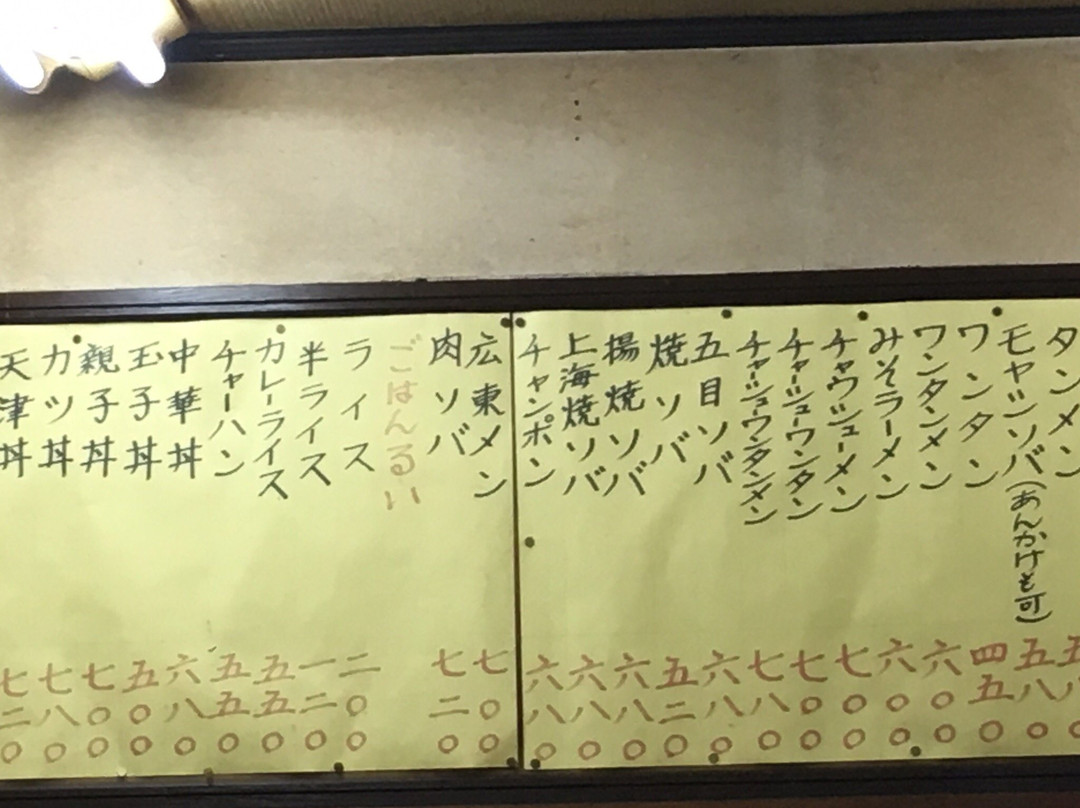 タンメン 五八〇
モヤシソバ(あんかけも可) 五八〇
ワンタン 四五〇
ワンタンメン 六〇〇
みそラーメン 六〇〇
チャウシューメン 七〇〇
チャーシューワンタン 七〇〇
チャーシューワンタンメン 七八〇
五目ソバ 六八〇
焼ソバ 五二〇
揚焼ソバ 六八〇
上海焼ソバ 六八〇
チャンポン 六八〇
広東メン 七〇〇
肉ソバ 七二〇
ごはんるい
ライス 二〇〇
半ライス 一二〇
カレーライス 五五〇
チャーハン 五五〇
中華丼 六八〇
玉子丼 五〇〇
親子丼 七〇〇
カツ丼 七八〇
天津丼 七二〇